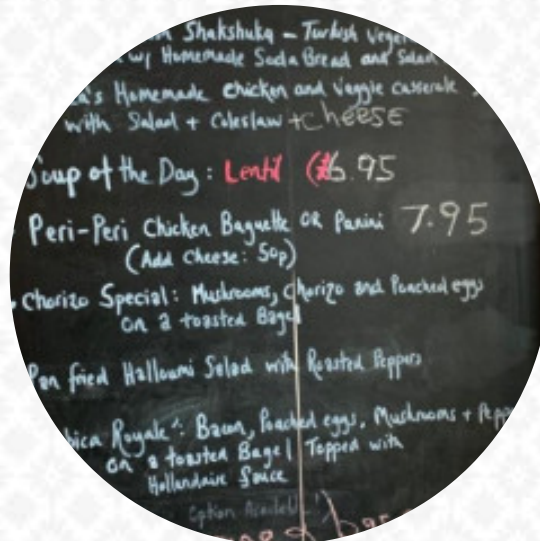 Shakshuka - Turkish
w/ Homemade Soda Bread and Salad
Homemade chicken and Veggie casserole
with Salad + Coleslaw + CHEESE
Soup of the Day : Lentil (£6.95
Peri-Peri Chicken Baguette OR Panini 7.95
(Add Cheese: 50p)
Chorizo Special: Mushrooms, Chorizo and Poached eggs
on a toasted Bagel
Pan fried Halloumi Salad with Roasted Peppers
Royale": Bacon, Poached eggs, Mushrooms +
on a toasted Bagel Topped with
Hollandaise Sauce
Option